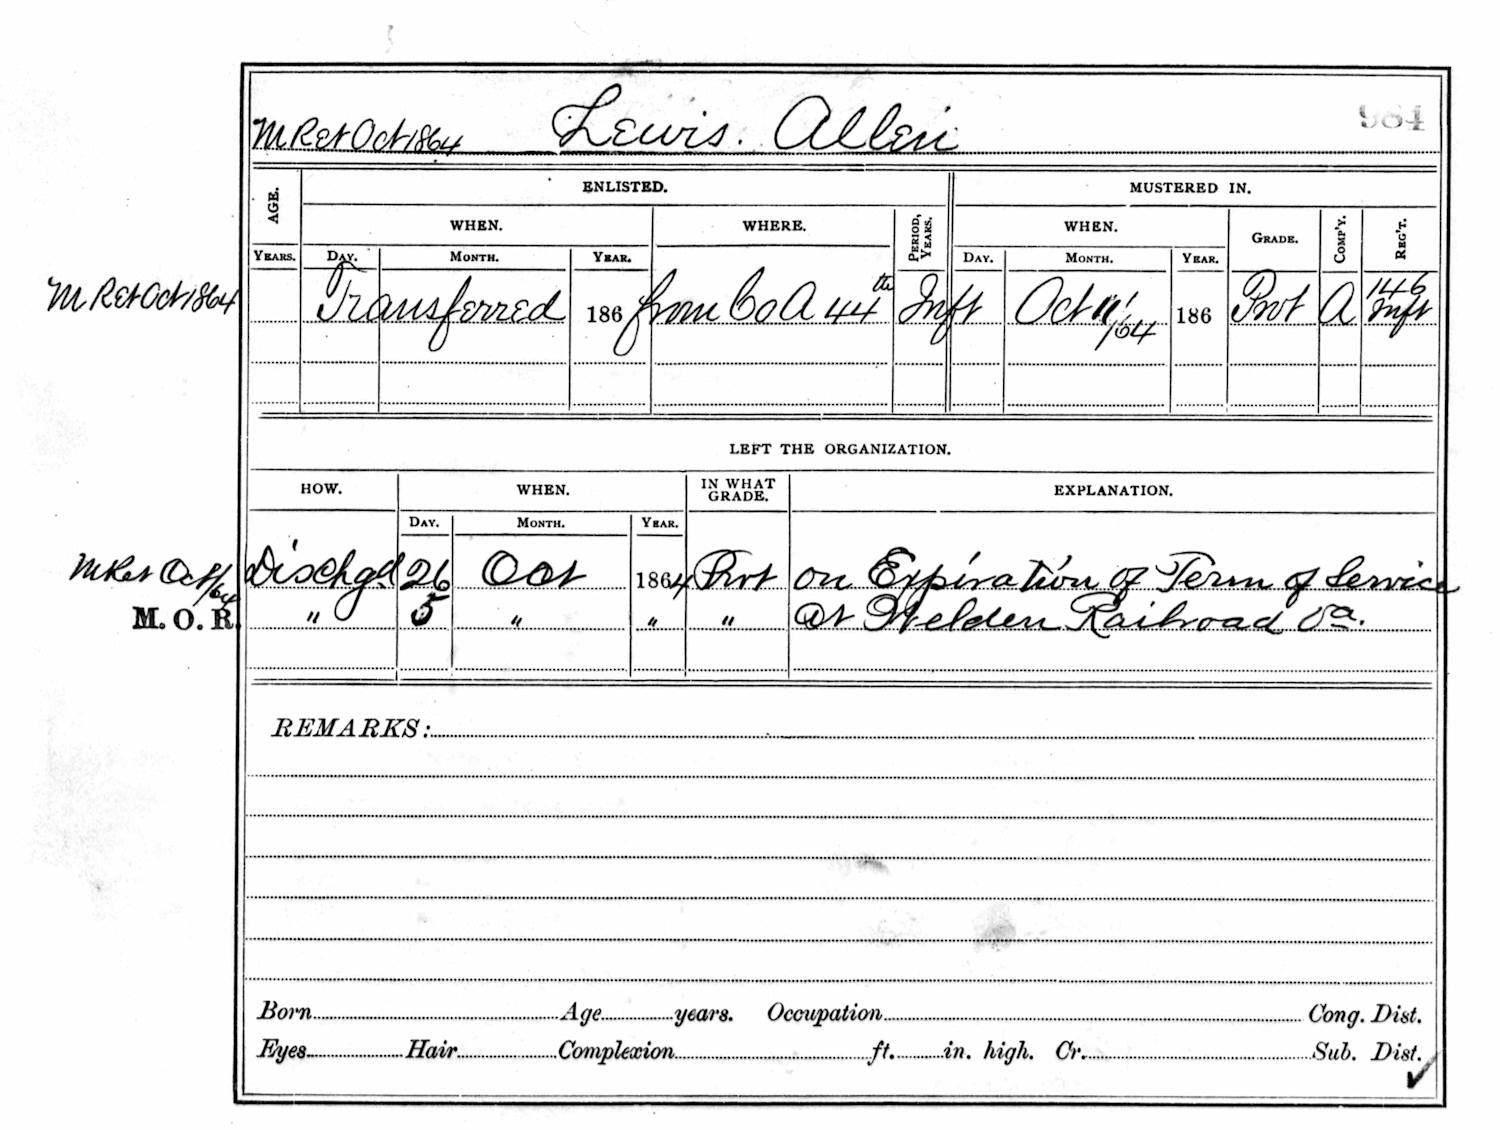 984
M Ret Oct 1864 Lewis. Allen
AGE. ENLISTED. MUSTERED IN.
WHEN. WHERE. PERIOD, YEARS. WHEN. GRADE. COMP'Y. REG'T.
YEARS. DAY. MONTH. YEAR. DAY. MONTH. YEAR.
M Ret Oct 1864 Transferred 186 from Co A 44th Inft Oct 11/64 186 Prvt A 146 Inft
LEFT THE ORGANIZATION.
HOW. WHEN. IN WHAT GRADE. EXPLANATION.
DAY. MONTH. YEAR.
M Ret Oct/64 Dischgd 26 Oct 1864 Prvt on Expiration of Term of Service
M. O. R. " 5 " " " at Welden Railroad Va.
REMARKS:
Born Age years. Occupation Cong. Dist.
Eyes Hair Complexion ft. in. high. Cr. Sub. Dist.